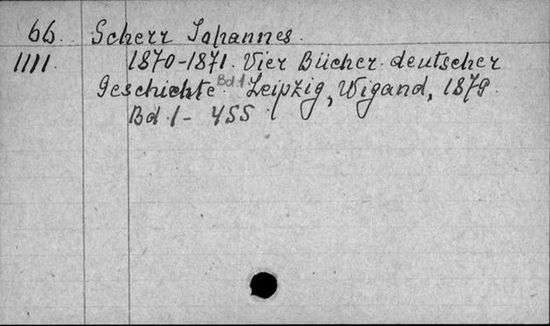 66. Scherr Johannes.
1111. 1870-1871. Vier Bücher deutscher
Geschichte. Bd 1. Leipzig, Wigand, 1879.
Bd 1 - 455